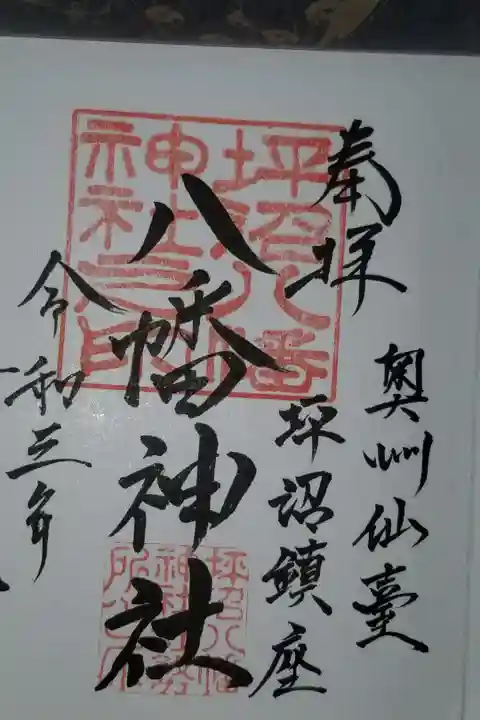 奉拝
奥州仙臺
坪沼鎮座
八幡神社
令和三年
坪沼八幡
神社之印
坪沼八幡
神社社務
所之印